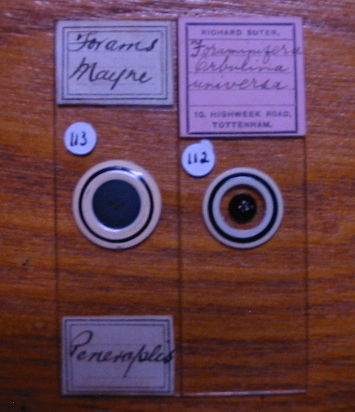 Forams
Mayne
113
Peneroplis
RICHARD SUTER,
Foraminifera
Orbulina
universa.
10, HIGHWEEK ROAD,
TOTTENHAM.
112